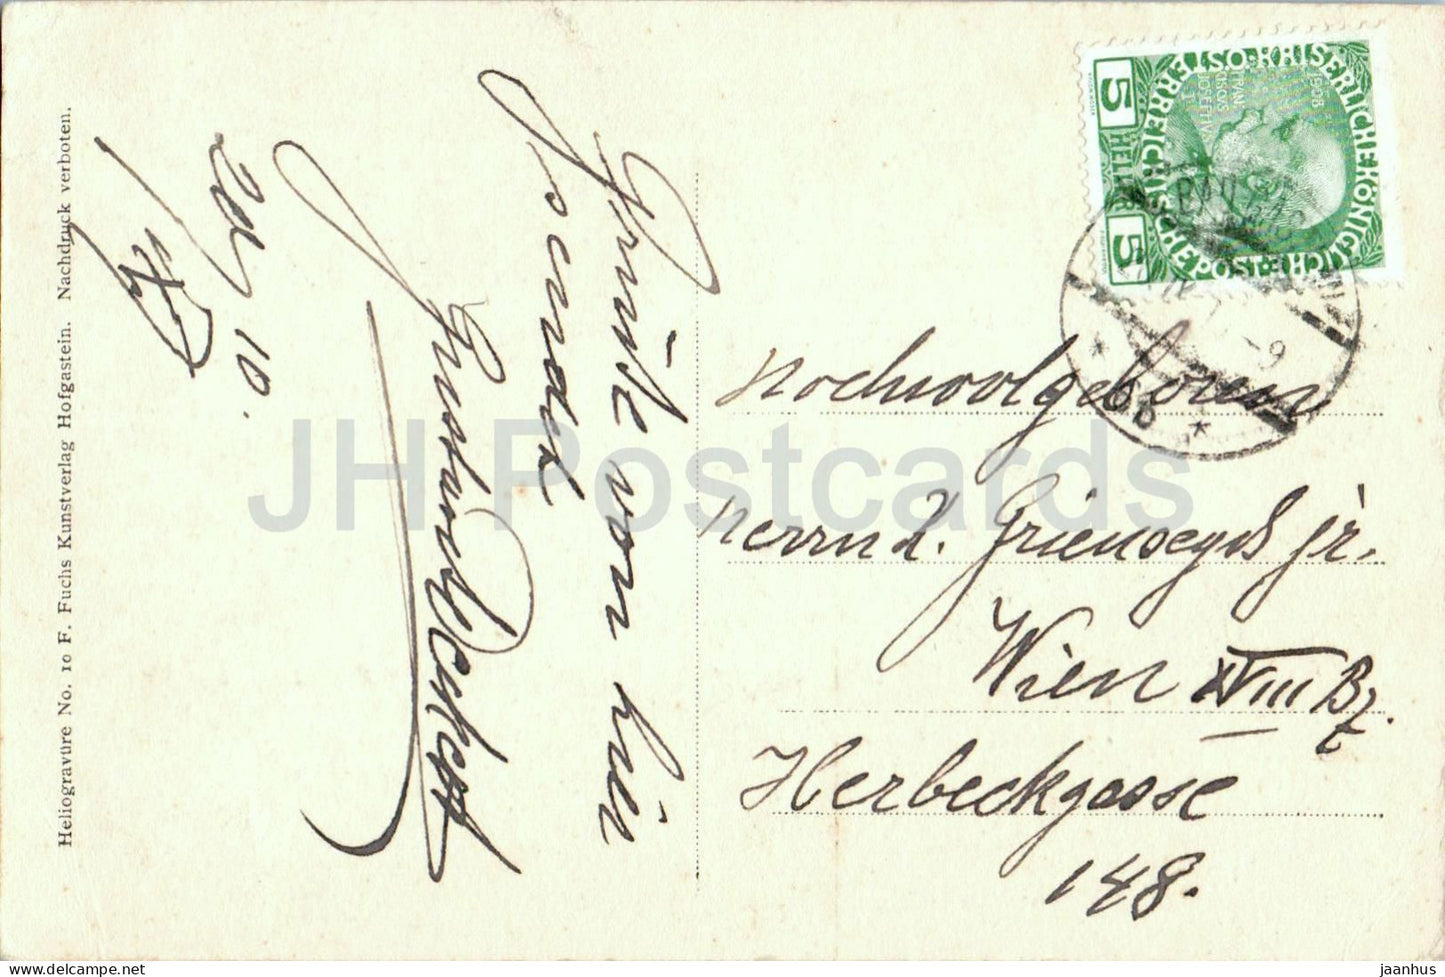 Heliogravüre No. 10 F. Fuchs Kunstverlag Hofgastein. Nachdruck verboten.
20/ 10.
Grüße von hier
sendet
KAISERLICHE KÖNIGLICHE ÖSTERREICHISCHE POST
1908
5 HELLER 5
BAD GAS
-9
* b *
Hochwohlgeboren
Herrn L. Grienseyds jr.
Wien XVIII Bz.
Herbeckgasse
148.
JH Postcards
delcampe.net
jaanhus